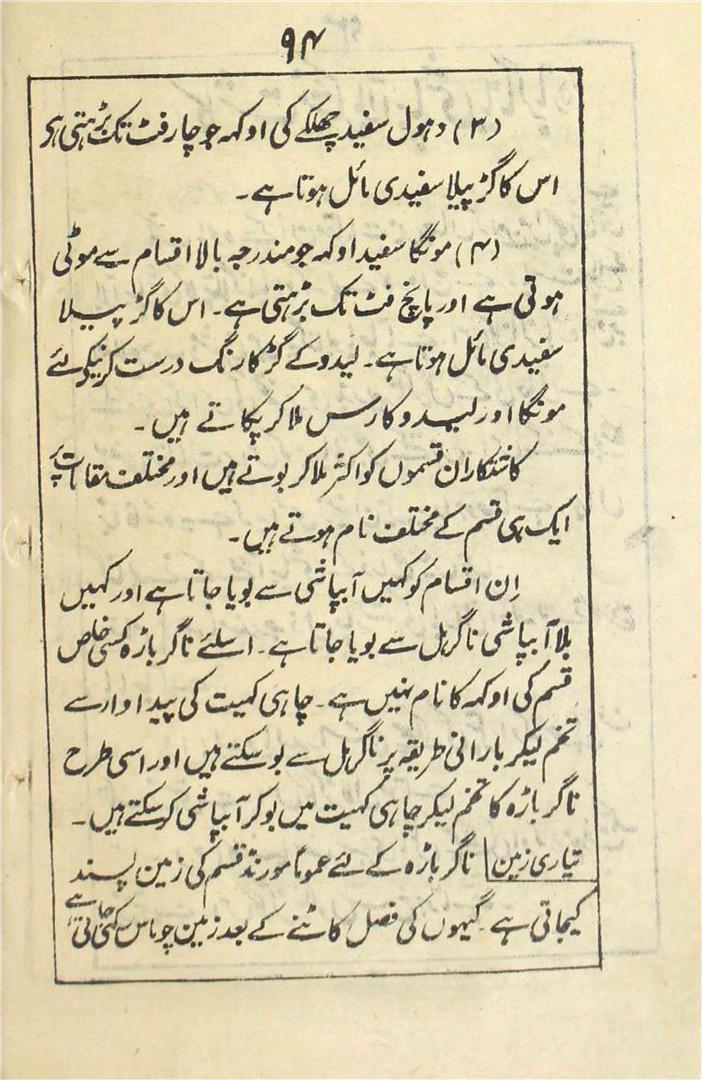 ۹۴
(۳) دہول سفید چھلکے کی اوکہہ جو چار فٹ تک بڑہتی ہی
اس کا گڑ پیلا سفیدی مائل ہوتا ہے۔
(۴) مونگا سفید اوکہہ جو مندرجہ بالا اقسام سے موٹی
ہوتی ہے اور پانچ فٹ تک بڑہتی ہے۔ اس کا گڑ پیلا
سفیدی مائل ہوتا ہے۔ لیدو کے گڑ کا رنگ درست کرنیکے لئے
مونگا اور لیدو کا رس ملا کر پکاتے ہیں۔
کاشتکاران قسموں کو اکثر ملا کر بوتے ہیں اور مختلف مقامات پر
ایک ہی قسم کے مختلف نام ہوتے ہیں۔
اِن اقسام کو کہیں آبپاشی سے بویا جاتا ہے اور کہیں
بلا آبپاشی ناگر ہل سے بویا جاتا ہے۔ اسلئے ناگر باڑہ کسی خاص
قسم کی اوکہہ کا نام نہیں ہے۔ چاہی کہیت کی پیداوار سے
تخم لیکر بارانی طریقہ پر ناگر ہل سے بو سکتے ہیں اور اسی طرح
ناگر باڑہ کا تخم لیکر چاہی کہیت میں بو کر آبپاشی کر سکتے ہیں۔
تیاری زمین ناگر باڑہ کے لئے عموماً مورنڈ قسم کی زمین پسند
کیجاتی ہے۔ گیہوں کی فصل کاٹنے کے بعد زمین چوماس رکھی جاتی ہے